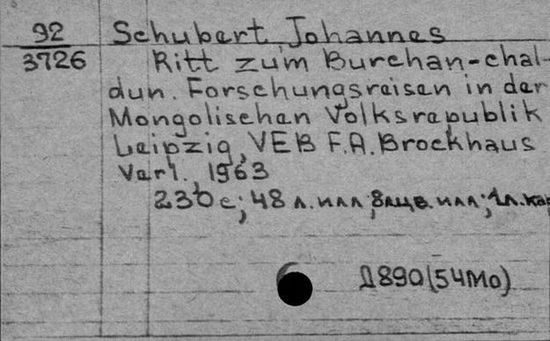 92 Schubert, Johannes
3726 Ritt zum Burchan-chal-
dun. Forschungsreisen in der
Mongolischen Volksrepublik
Leipzig, VEB F.A. Brockhaus
Verl., 1963
230 с; 48 л. илл; 8 л цв. илл; 1 л. кар
Д890(54Мо)